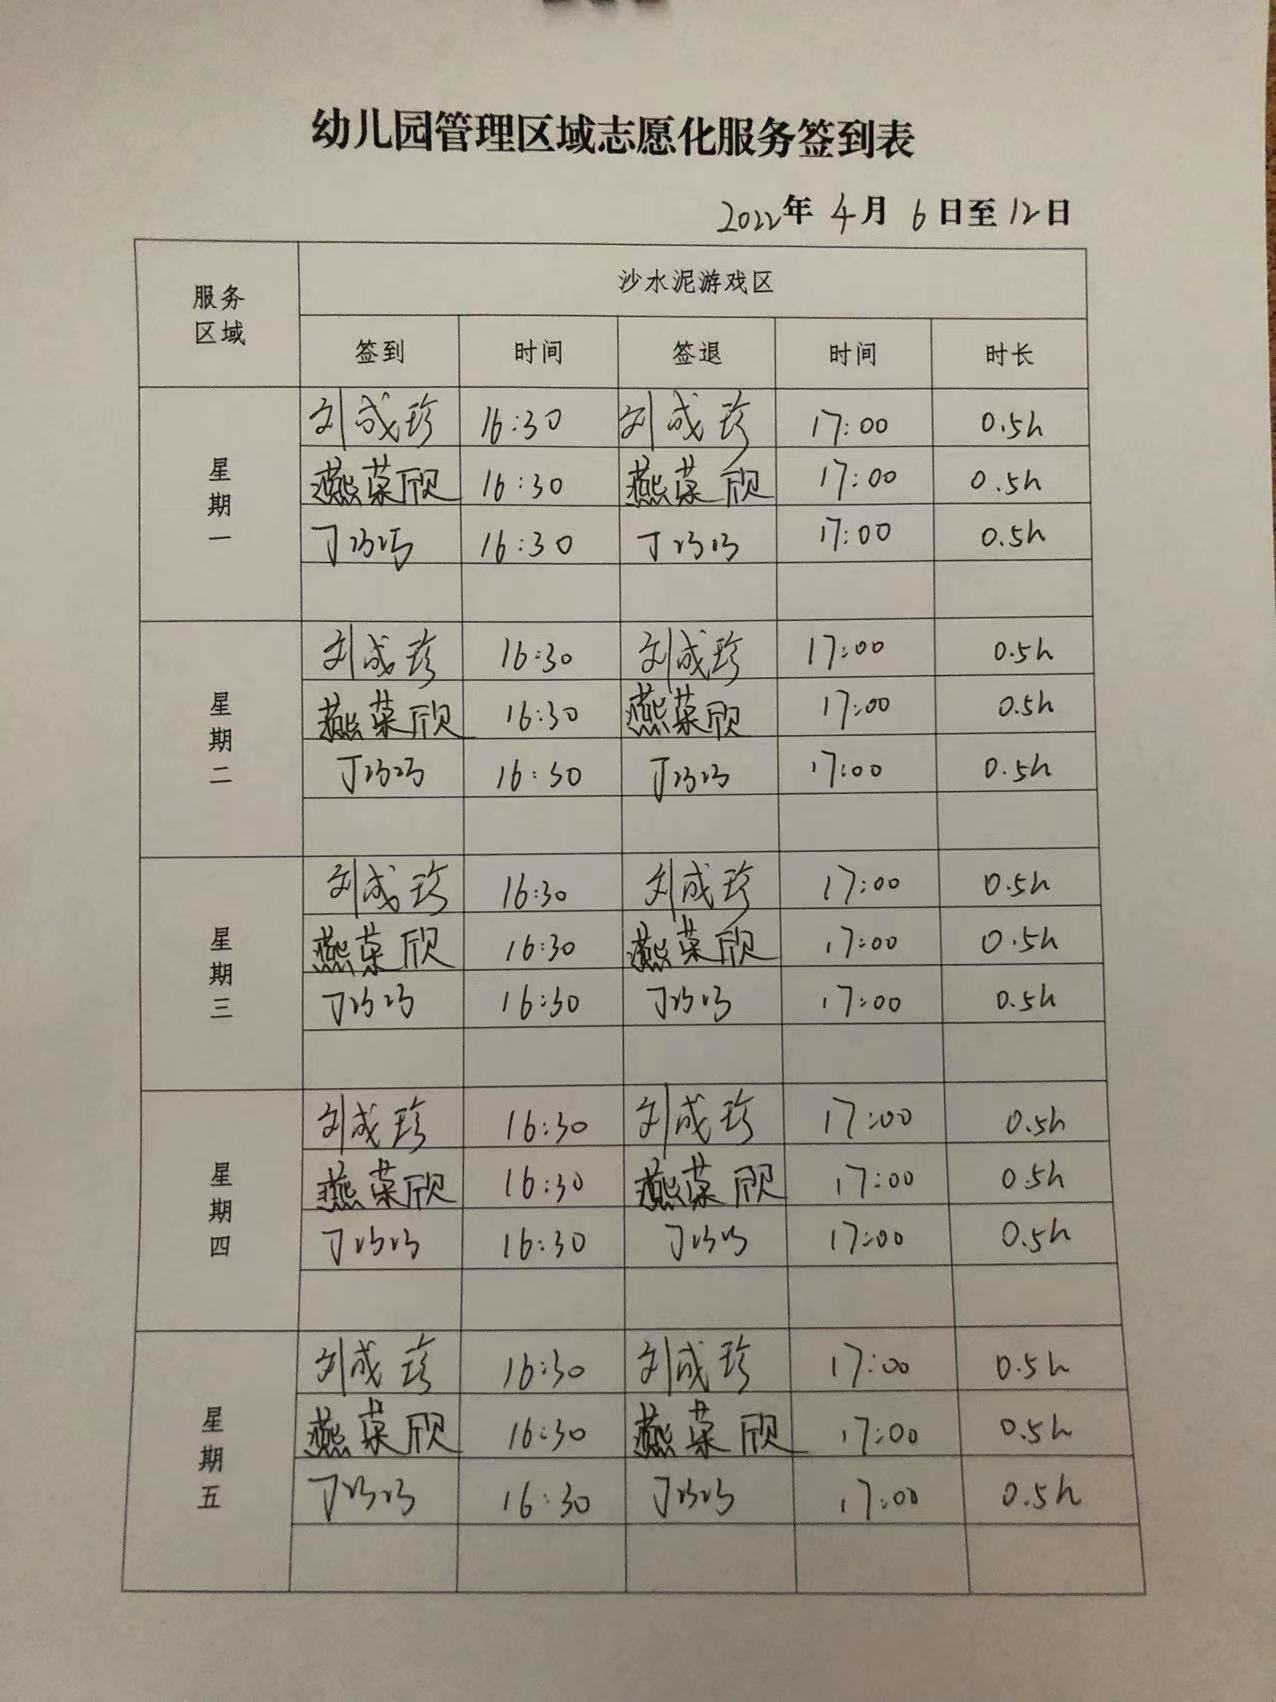 幼儿园管理区域志愿化服务签到表
2022年 4月 6日至12日
服务区域 沙水泥游戏区
签到 时间 签退 时间 时长
星期一
刘成珍 16:30 刘成珍 17:00 0.5h
燕荣欣 16:30 燕荣欣 17:00 0.5h
丁巧巧 16:30 丁巧巧 17:00 0.5h
星期二
刘成珍 16:30 刘成珍 17:00 0.5h
燕荣欣 16:30 燕荣欣 17:00 0.5h
丁巧巧 16:30 丁巧巧 17:00 0.5h
星期三
刘成珍 16:30 刘成珍 17:00 0.5h
燕荣欣 16:30 燕荣欣 17:00 0.5h
丁巧巧 16:30 丁巧巧 17:00 0.5h
星期四
刘成珍 16:30 刘成珍 17:00 0.5h
燕荣欣 16:30 燕荣欣 17:00 0.5h
丁巧巧 16:30 丁巧巧 17:00 0.5h
星期五
刘成珍 16:30 刘成珍 17:00 0.5h
燕荣欣 16:30 燕荣欣 17:00 0.5h
丁巧巧 16:30 丁巧巧 17:00 0.5h